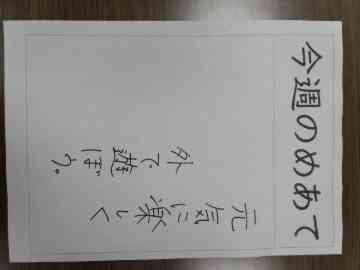 今週のめあて
元気に楽しく
外で遊ぼう。